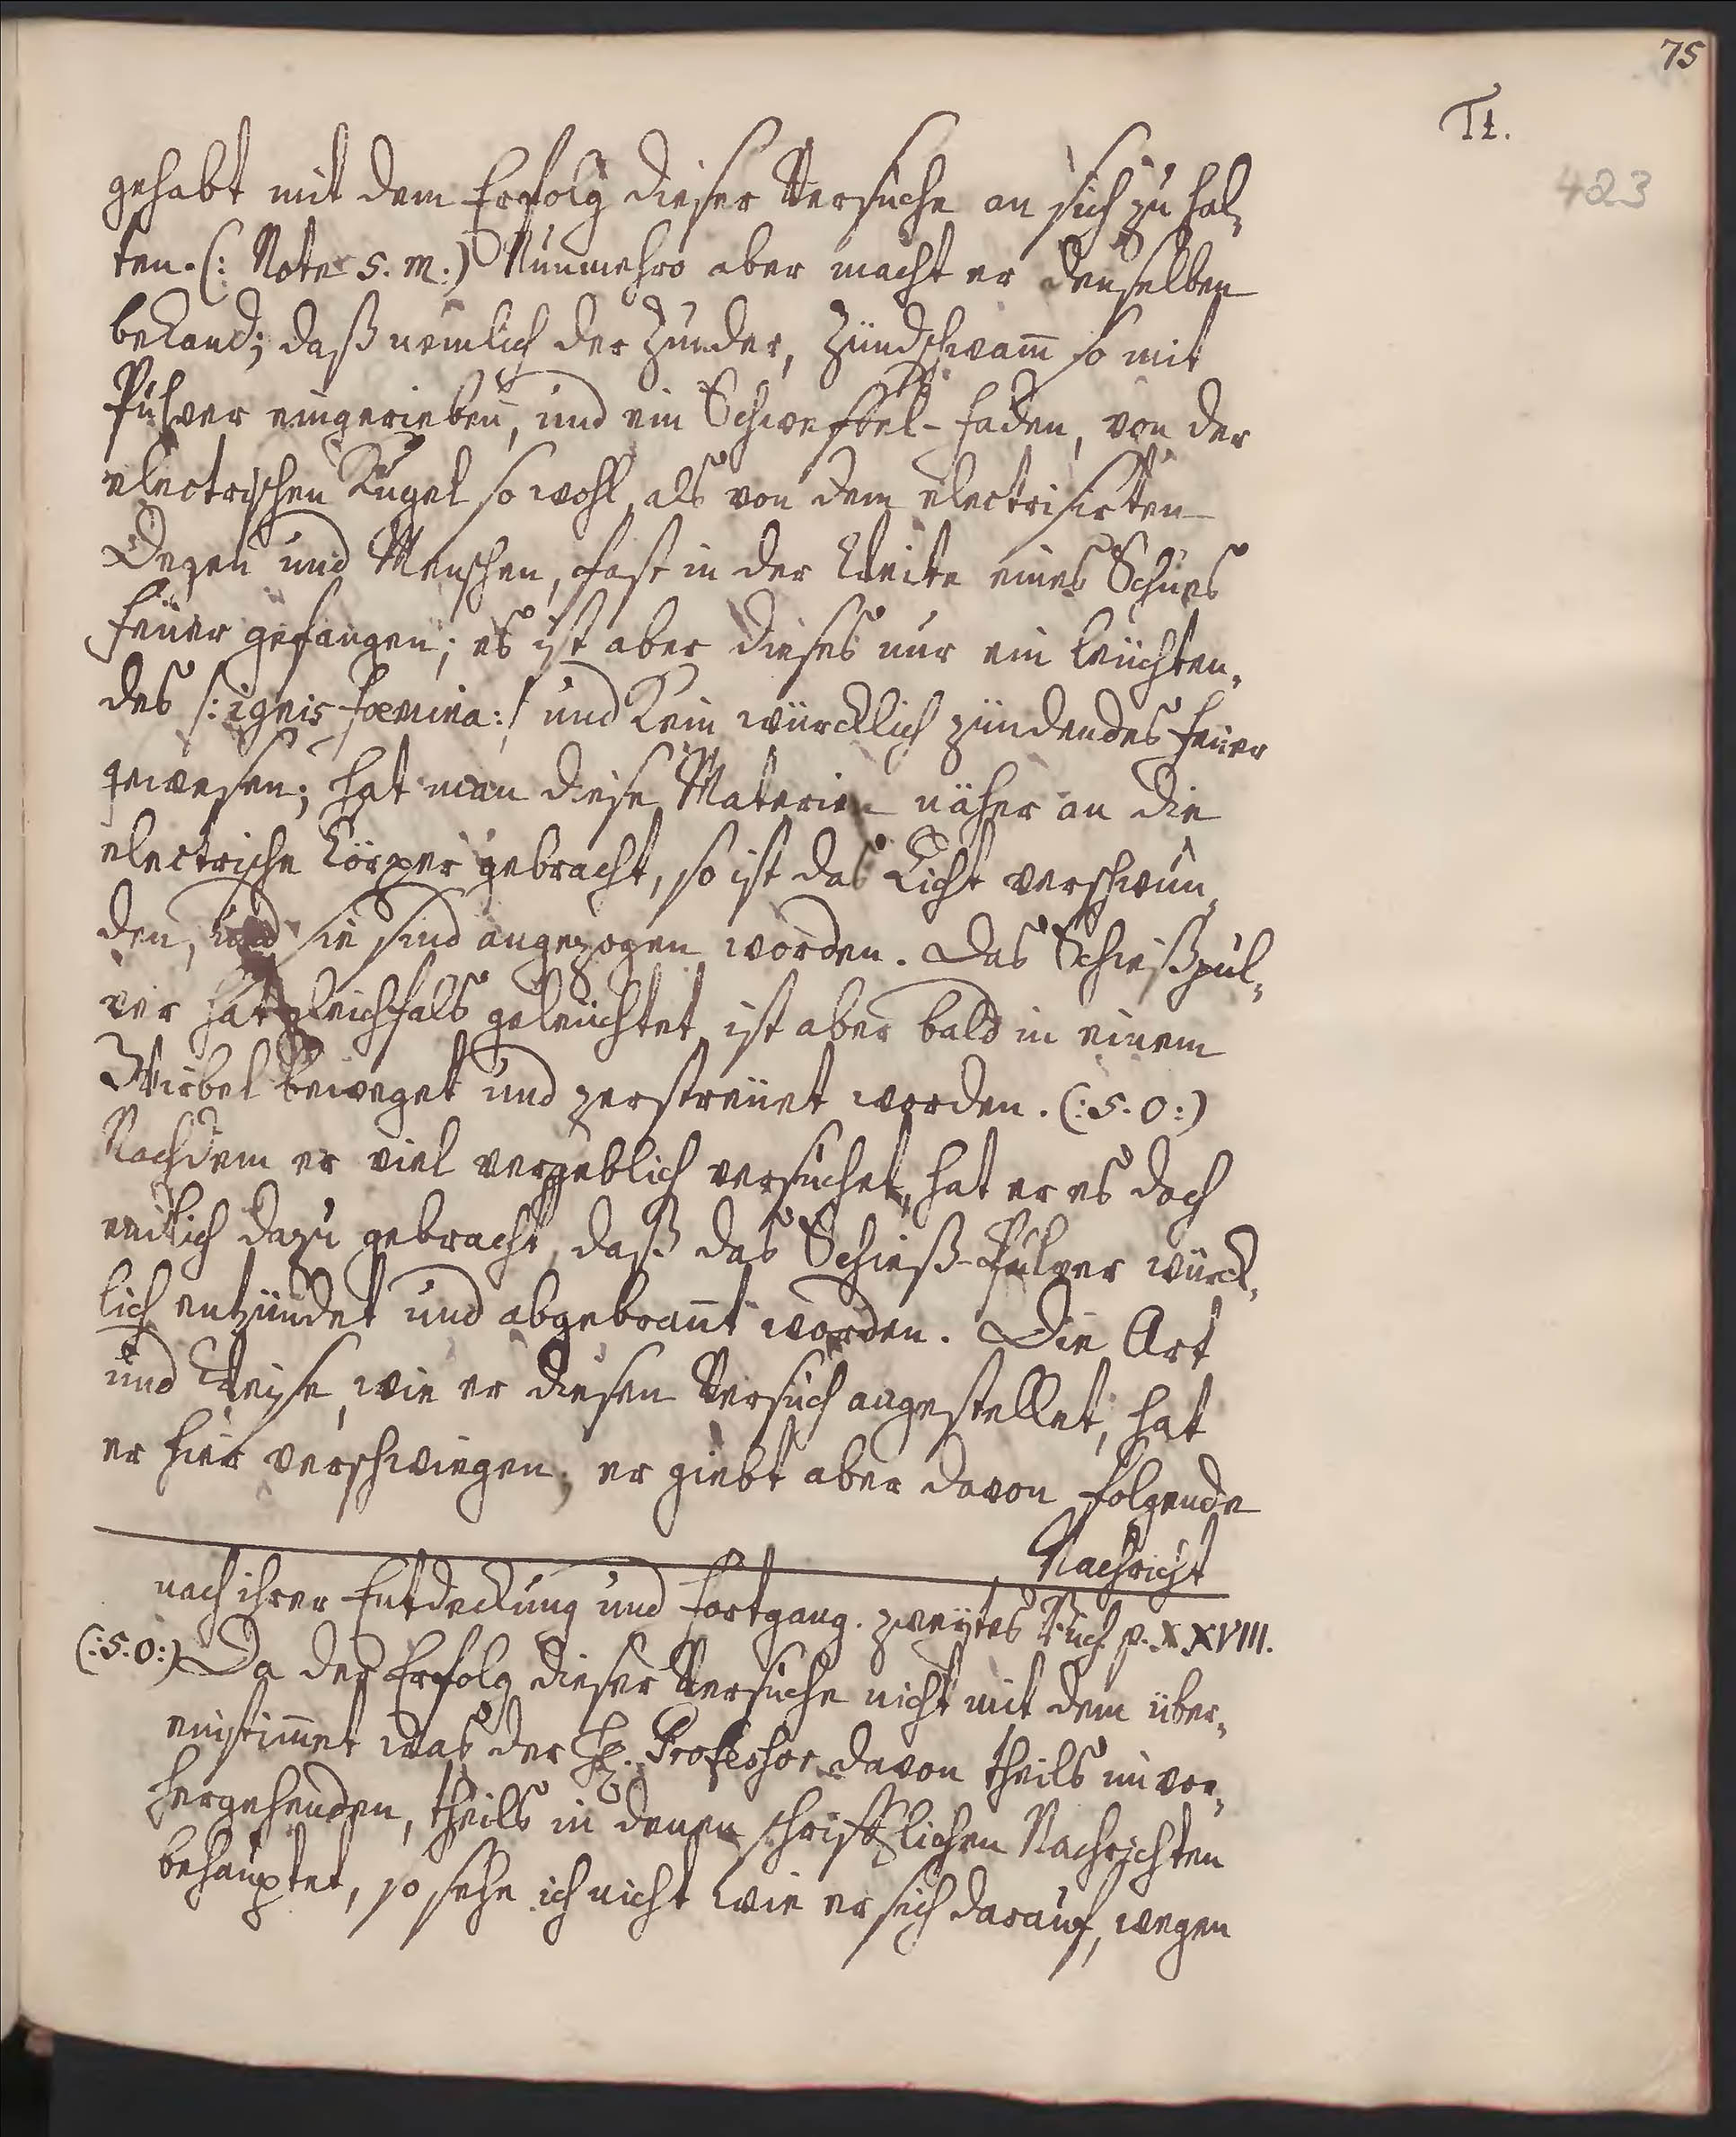 75
Tt.
423
gehabt mit dem Erfolg dieser Versuche an sich zu hal„
ten. (: Note 5. m.) Nunmehro aber macht er denselben
bekand; daß nemlich der Zunder, Zündschwam̄ so mit
Pulver eingerieben, und ein Schweffel-Faden, von der
electrischen Kugel so wohl, als von dem electrisirten
Degen und Menschen, fast in der Weite eines Schues
Feuer gefangen; es ist aber dieses nur ein leüchten„
des /: ignis foemina :/ und kein würcklich zündendes Feuer
gewesen; hat man diese Materien näher an die
electrische Cörper gebracht, so ist das Licht verschwun„
den, und sie sind angezogen worden. Das Schießpul„
ver hat gleichfals geleüchtet, ist aber bald in einem
Wirbel beweget und zerstreüet worden. (: 5. o :)
Nachdem er viel vergeblich versuchet, hat er es doch
endlich dazu gebracht, daß das Schieß-Pulver würck„
lich entzündet und abgebran̄t worden. Die Art
und Weise, wie er diesen Versuch angestellet, hat
er hier verschwiegen; er giebt aber davon folgende
Nachricht
nach ihrer Entdeckung und Fortgang. zweytes Buch p. XXVIII.
(: 5. o :) Da der Erfolg dieser Versuche nicht mit dem über„
einstim̄et was der H. Professor davon theils im vor„
hergehenden, theils in denen schrifftlichen Nachrichten
behauptet, so sehe ich nicht wie er sich darauf, wegen